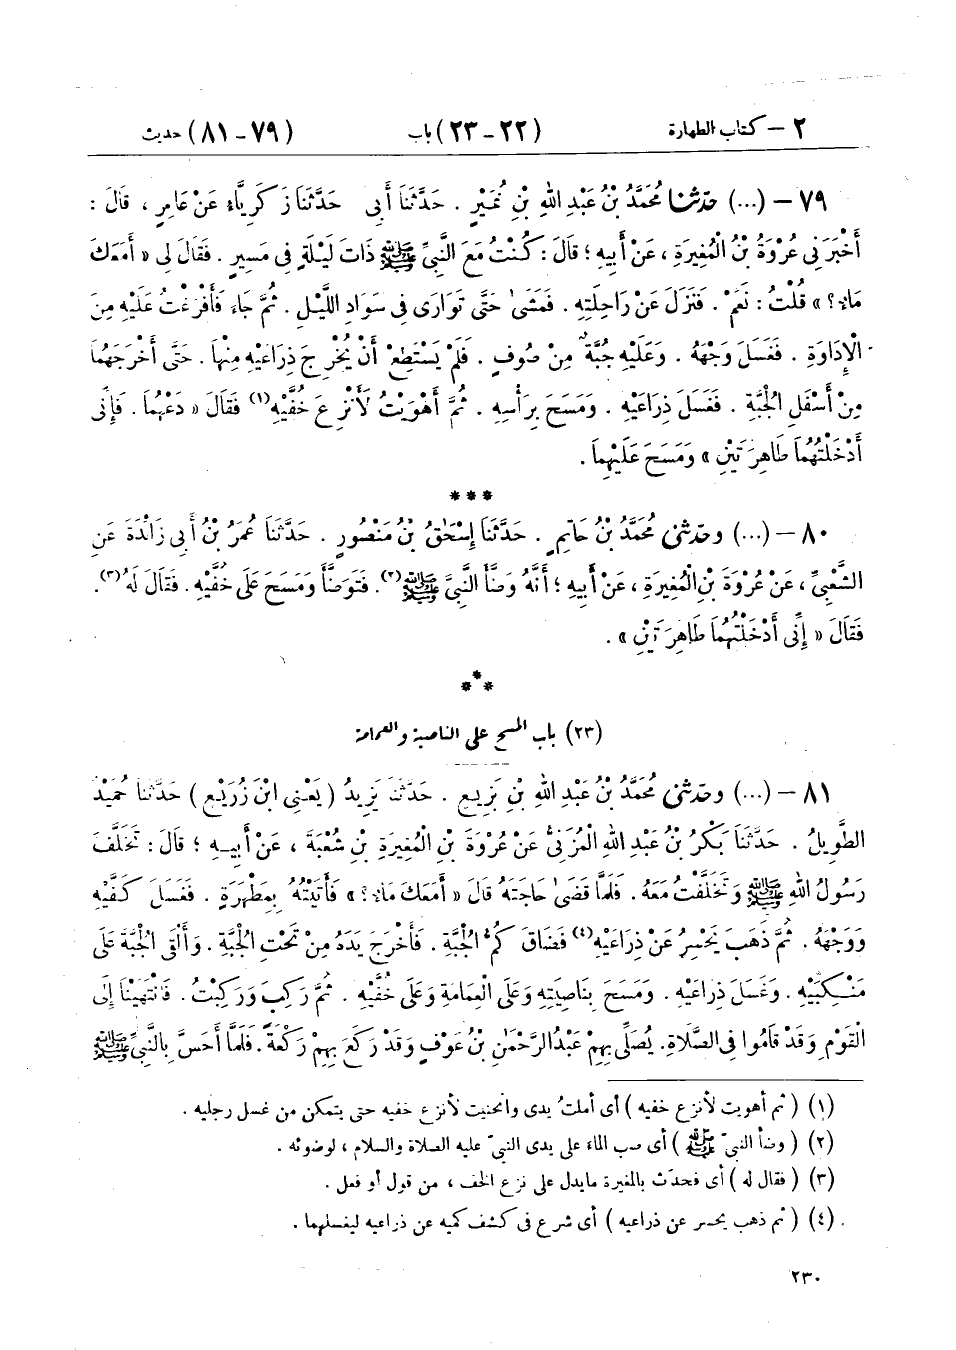 ٢ – كتاب الطهارة (٢٢ – ٢٣) باب (٧٩ – ٨١) حديث
٧٩ – (...) حَدَّثَنَا مُحَمَّدُ بْنُ عَبْدِ اللهِ بْنِ نُمَيْرٍ . حَدَّثَنَا أَبِي حَدَّثَنَا زَكَرِيَّاءُ عَنْ عَامِرٍ ، قَالَ :
أَخْبَرَنِي عُرْوَةُ بْنُ الْمُغِيرَةِ ، عَنْ أَبِيهِ ؛ قَالَ : كُنْتُ مَعَ النَّبِيِّ ﷺ ذَاتَ لَيْلَةٍ فِي مَسِيرٍ . فَقَالَ لِي « أَمَعَكَ
مَاءٌ ؟ » قُلْتُ : نَعَمْ . فَنَزَلَ عَنْ رَاحِلَتِهِ . فَمَشَىٰ حَتَّى تَوَارَى فِي سَوَادِ اللَّيْلِ . ثُمَّ جَاءَ فَأَفْرَغْتُ عَلَيْهِ مِنَ
الْإِدَاوَةِ . فَغَسَلَ وَجْهَهُ . وَعَلَيْهِ جُبَّةٌ مِنْ صُوفٍ . فَلَمْ يَسْتَطِعْ أَنْ يُخْرِجَ ذِرَاعَيْهِ مِنْهَا . حَتَّى أَخْرَجَهُمَا
مِنْ أَسْفَلِ الْجُبَّةِ . فَغَسَلَ ذِرَاعَيْهِ . وَمَسَحَ بِرَأْسِهِ . ثُمَّ أَهْوَيْتُ لِأَنْزِعَ خُفَّيْهِ(١) فَقَالَ « دَعْهُمَا . فَإِنِّي
أَدْخَلْتُهُمَا طَاهِرَتَيْنِ » وَمَسَحَ عَلَيْهِمَا .
***
٨٠ – (...) وحَدَّثَنِي مُحَمَّدُ بْنُ حَاتِمٍ . حَدَّثَنَا إِسْحَٰقُ بْنُ مَنْصُورٍ . حَدَّثَنَا عُمَرُ بْنُ أَبِي زَائِدَةَ عَنِ
الشَّعْبِيِّ ، عَنْ عُرْوَةَ بْنِ الْمُغِيرَةِ ، عَنْ أَبِيهِ ؛ أَنَّهُ وَضَّأَ النَّبِيَّ ﷺ(٢). فَتَوَضَّأَ وَمَسَحَ عَلَى خُفَّيْهِ . فَقَالَ لَهُ(٣).
فَقَالَ « إِنِّي أَدْخَلْتُهُمَا طَاهِرَتَيْنِ » .
***
(٢٣) باب المسح على الناصية والعمامة
٨١ – (...) وحَدَّثَنِي مُحَمَّدُ بْنُ عَبْدِ اللهِ بْنِ بَزِيعٍ . حَدَّثَنَا يَزِيدُ ( يَعْنِي ابْنَ زُرَيْعٍ ) حَدَّثَنَا حُمَيْدٌ
الطَّوِيلُ . حَدَّثَنَا بَكْرُ بْنُ عَبْدِ اللهِ الْمُزَنِيُّ عَنْ عُرْوَةَ بْنِ الْمُغِيرَةِ بْنِ شُعْبَةَ ، عَنْ أَبِيهِ ؛ قَالَ : تَخَلَّفَ
رَسُولُ اللهِ ﷺ وَتَخَلَّفْتُ مَعَهُ . فَلَمَّا قَضَىٰ حَاجَتَهُ قَالَ « أَمَعَكَ مَاءٌ ؟ » فَأَتَيْتُهُ بِمِطْهَرَةٍ . فَغَسَلَ كَفَّيْهِ
وَوَجْهَهُ . ثُمَّ ذَهَبَ يَحْسِرُ عَنْ ذِرَاعَيْهِ(٤) فَضَاقَ كُمُّ الْجُبَّةِ . فَأَخْرَجَ يَدَهُ مِنْ تَحْتِ الْجُبَّةِ . وَأَلْقَى الْجُبَّةَ عَلَى
مَنْكِبَيْهِ . وَغَسَلَ ذِرَاعَيْهِ . وَمَسَحَ بِنَاصِيَتِهِ وَعَلَى الْعِمَامَةِ وَعَلَى خُفَّيْهِ . ثُمَّ رَكِبَ وَرَكِبْتُ . فَانْتَهَيْنَا إِلَى
الْقَوْمِ وَقَدْ قَامُوا فِي الصَّلَاةِ. يُصَلِّي بِهِمْ عَبْدُ الرَّحْمَٰنِ بْنُ عَوْفٍ وَقَدْ رَكَعَ بِهِمْ رَكْعَةً . فَلَمَّا أَحَسَّ بِالنَّبِيِّ ﷺ
(١) ( ثم أهويت لأنزع خفيه ) أى أملت يدى وانحنيت لأنزع خفيه حتى يتمكن من غسل رجليه .
(٢) ( وضأ النبيّ ﷺ ) أى صب الماء على يدى النبيّ عليه الصلاة والسلام ، لوضوئه .
(٣) ( فقال له ) أى فحدث بالمغيرة مايدل على نزع الخف ، من قول أو فعل .
(٤) ( ثم ذهب يحسر عن ذراعيه ) أى شرع فى كشف كميه عن ذراعيه ليغسلهما .
٢٣٠